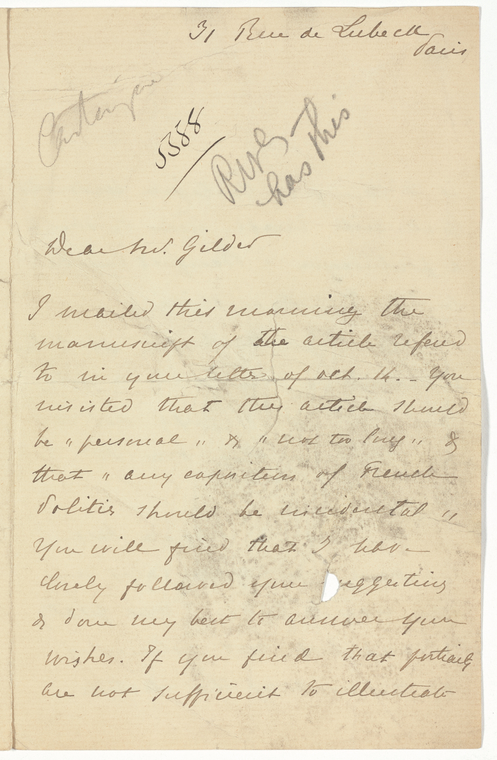 31 Rue de Lubeck
Paris
5388
RWG
has this
Dear Mr. Gilder
I mailed this morning the
manuscript of the article referred
to in your letter of Oct. 14. - You
insisted that this article should
be "personal" & "not too long" &
that "any exposition of French
Politics should be incidental"
You will find that I have
closely followed your suggestions
& done my best to answer your
wishes. If you find that
are not sufficient to illustrate